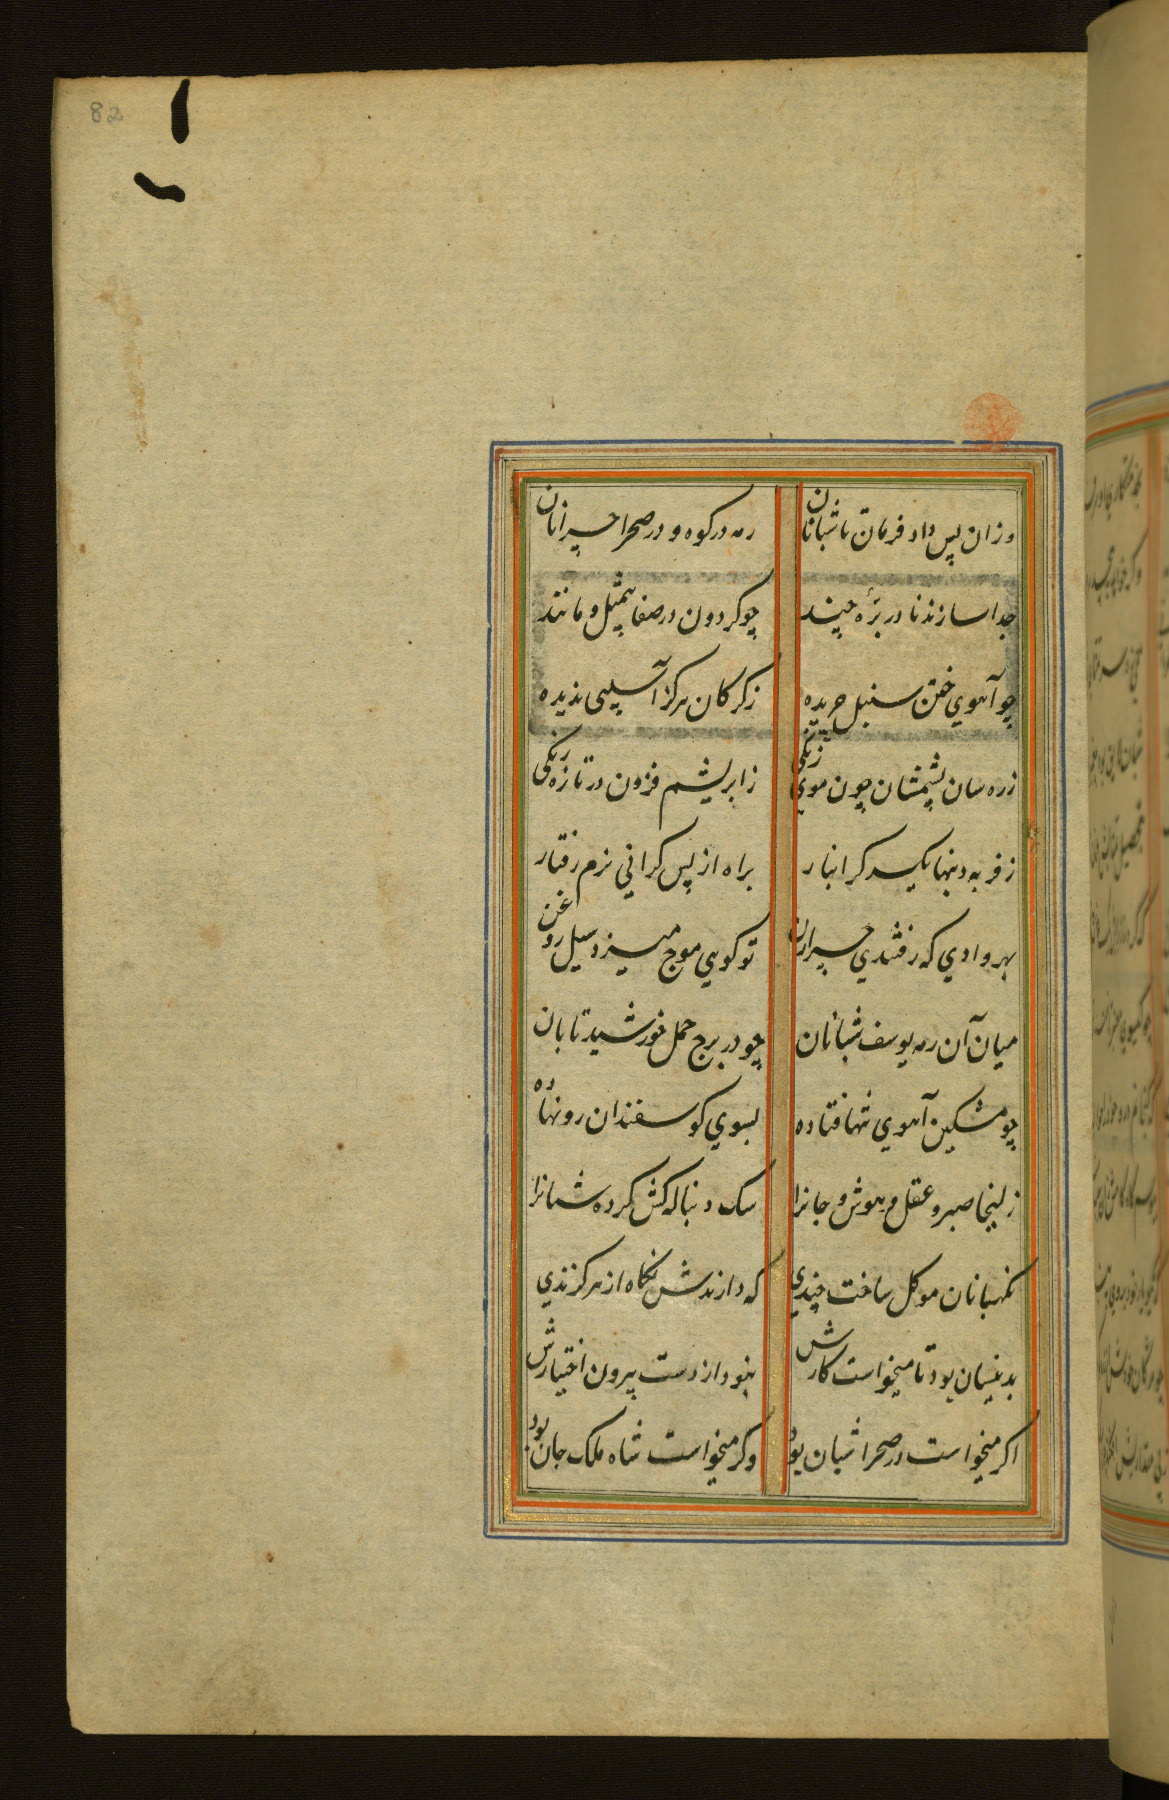 82
وزان پس داد فرمان تا شبانان
رمه در کوه و در صحرا چرانان
جدا سازند نادر بره چند
چو کردون در صفا بیمثل و مانند
چو آهوي ختن سنبل چریده
ز کرکان هرکز آسیبی ندیده
زره سان پشمشان چون موي زنکی
ز ابریشم فزون در تازه رنکی
ز فربه دنبها یکسر کرانبار
براه از پس کرانی نرم رفتار
بهر وادي که رفتندي چرانان
تو کویی موج میزد سیل روغن
میان آن رمه یوسف شبانان
چو در برج حمل خورشید تابان
چو مشکین آهوي تنها فتاده
بسوي کوسفندان رو نهاده
زلیخا صبر و عقل و هوش و جانرا
سک دنباله کش کرده شبانرا
نکهبانان موکل ساخت چندي
که دارندش نکاه از هر کزندي
بدینسان بود تا میخواست کارش
نبود از دست بیرون اختیارش
اکر میخواست در صحرا شبان بود
وکر میخواست شاه ملک جان بود